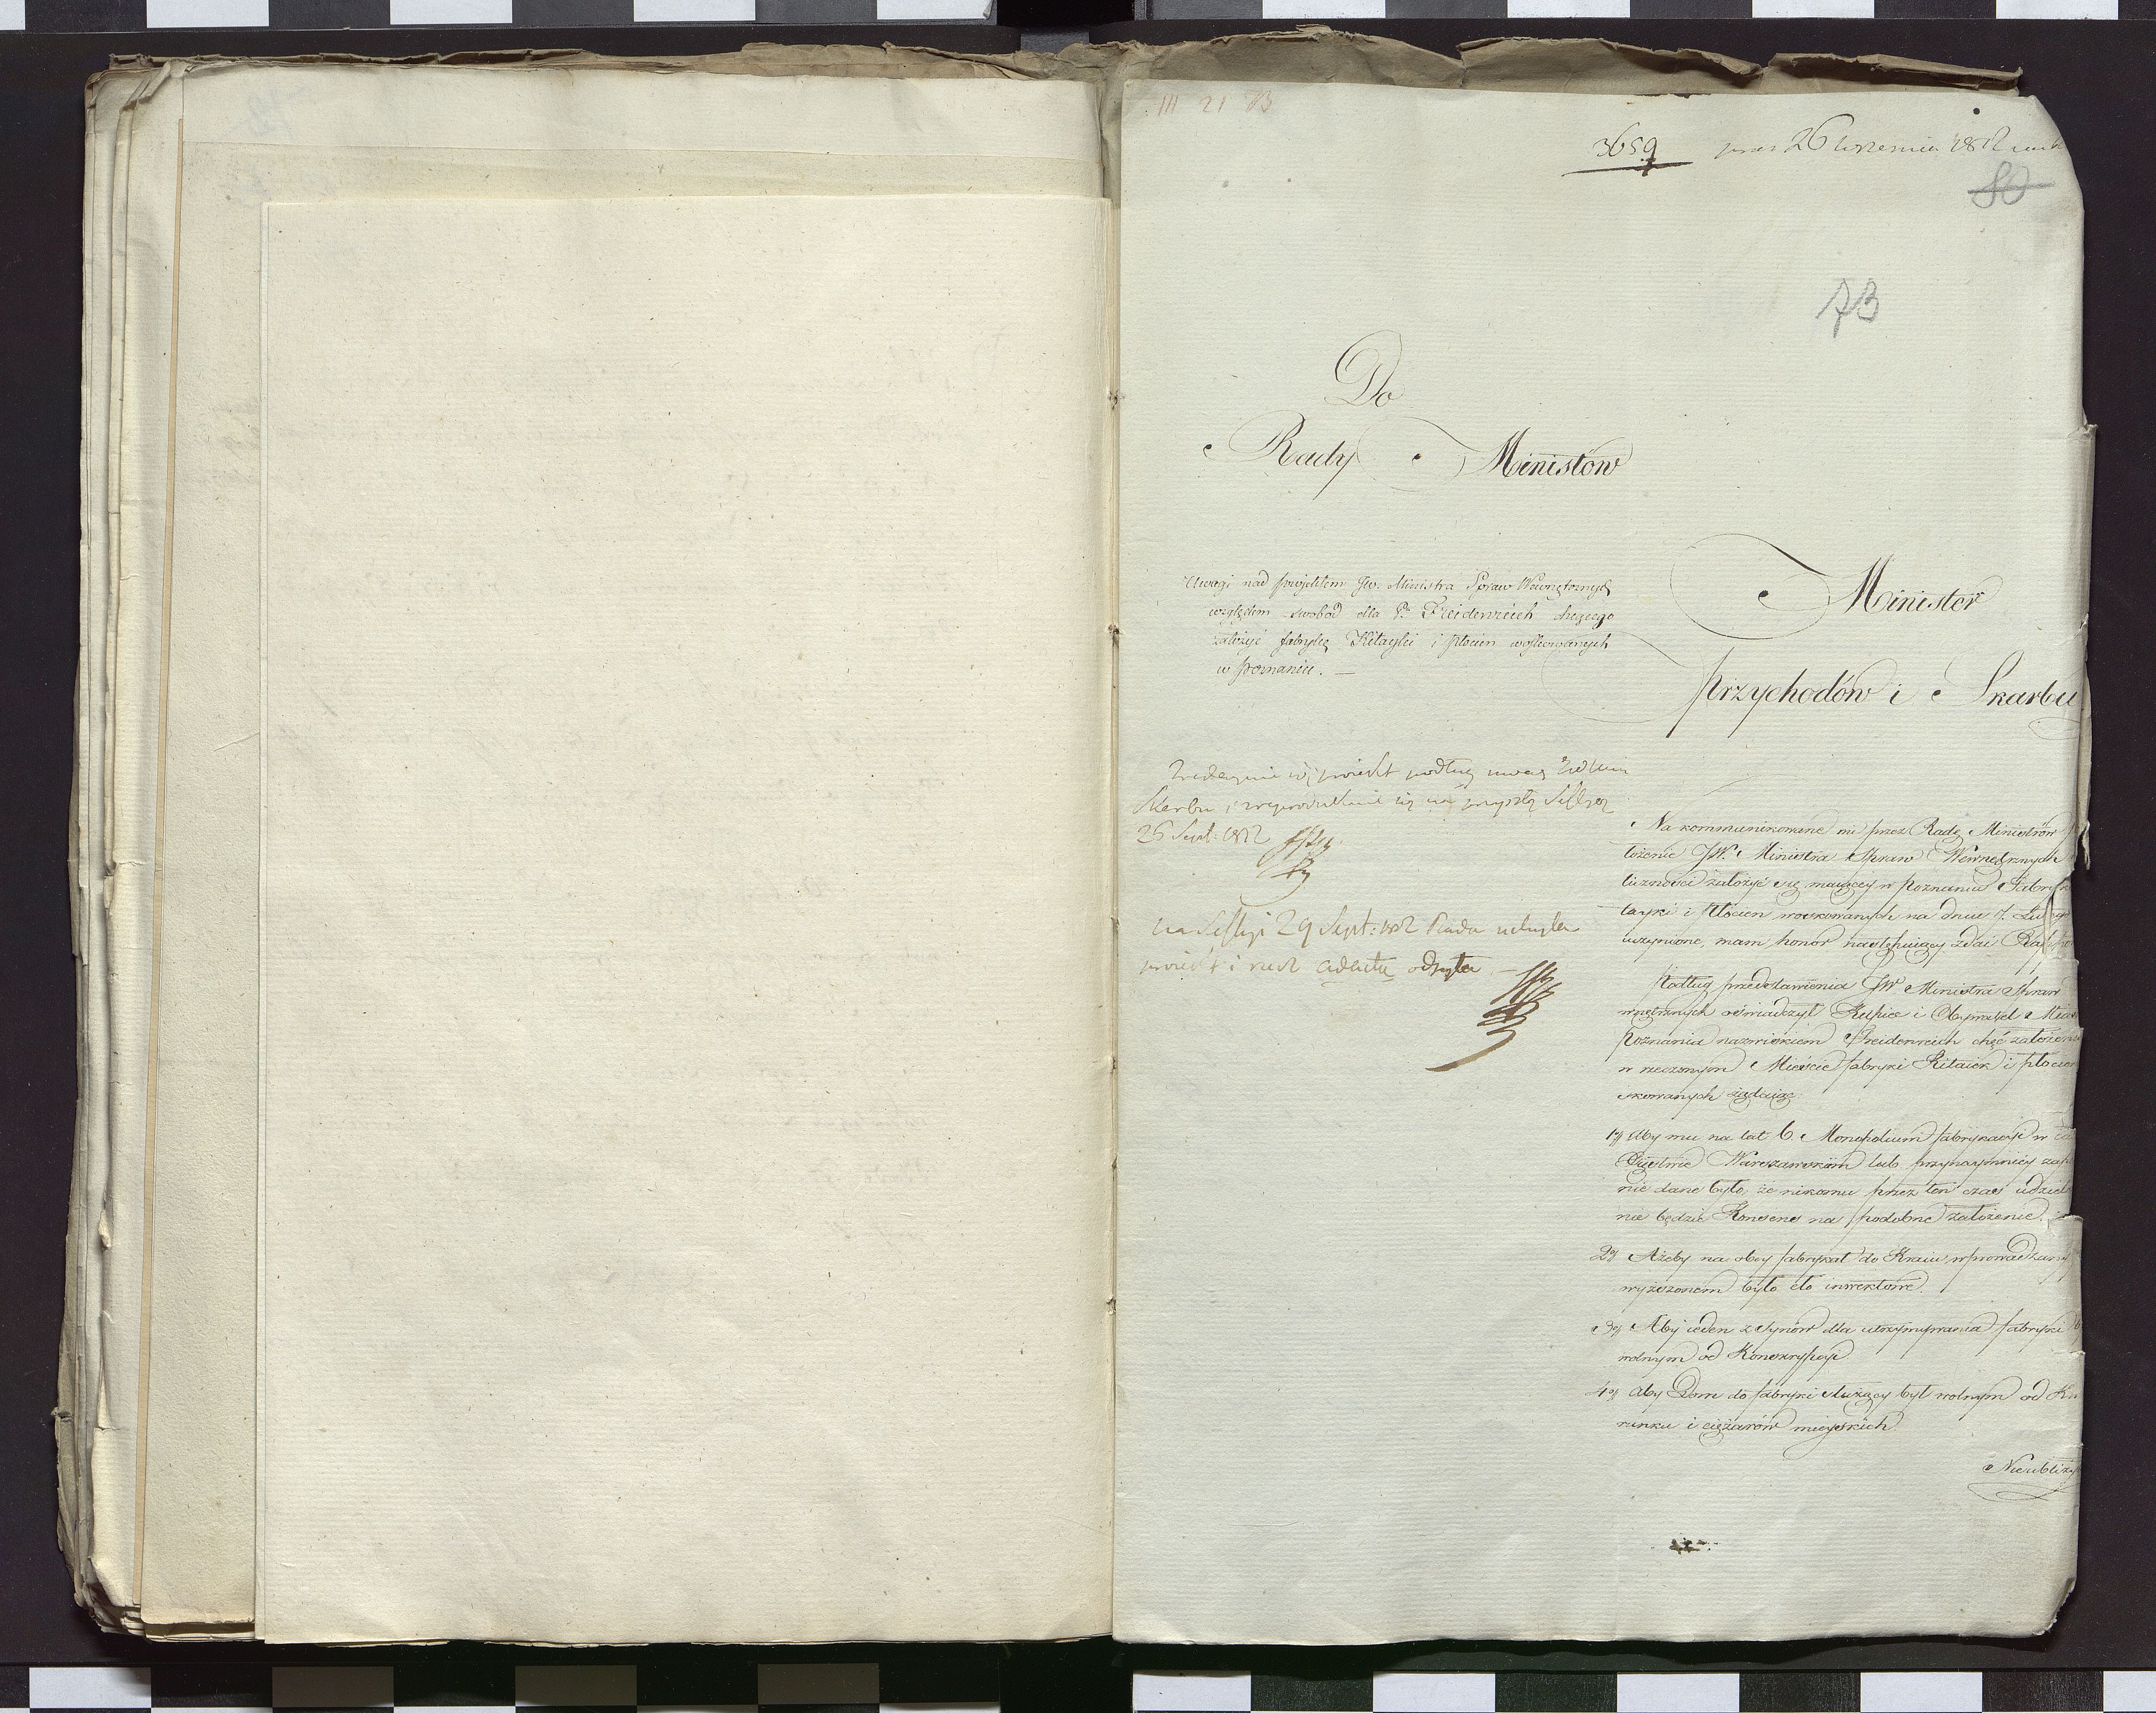 III 21 B
3659 26 Września 1812
80
73
Do
Rady Ministów
Uwagi nad projektem JW. Ministra Spraw Wewnętrznych
względem swobód dla P. Freidenreich chcącego
założyć fabrykę Kitayki i płocien woskowanych
w Poznaniu. —
Minister
Przychodów i Skarbu
proiekt podług uwag
Skarbu i na przyszłą Sessyą
26 Sept: 1812
Na Sessyi 29 Sept: 1812 Rada
proiekt i odsyła —
Na kommunikowane mi przez Radę Ministrów
łożenie JW. Ministra Spraw Wewnętrznych
liczności założyć się maiącey w Poznaniu Fabryk
tayki i Płócien woskowanych na dniu 7.
uczynione, mam honor następuiący zdać Rap
Podług przedstawienia JW. Ministra Spraw
wnętrznych oświadczył Kupiec i Obywatel Mias
Poznania nazwiskiem Freidenreich chęć założenia
w rzeczonym Mieście fabryki Kitaiek i płocien
skowanych żądaiąc
1o/ Aby mu na lat 6. Monopolium fabrykacyi w ca
Xięstwie Warszawskim lub przynaymniey zap
nie dane było, że nikomu przez ten czas udziel
nie będzie Konsens na podobne założenie.
2o/ Ażeby na obcy fabrykat do Kraiu wprowadzany
wyższonem było cło inwektowe.
3o/ Aby ieden z Synów dla utrzymywania fabryki b
wolnym od Konskrypcyi
4o/ Aby Dom do fabryki służący był wolnym od Kwa
runku i ciężarów mieyskich.
Nieubliża